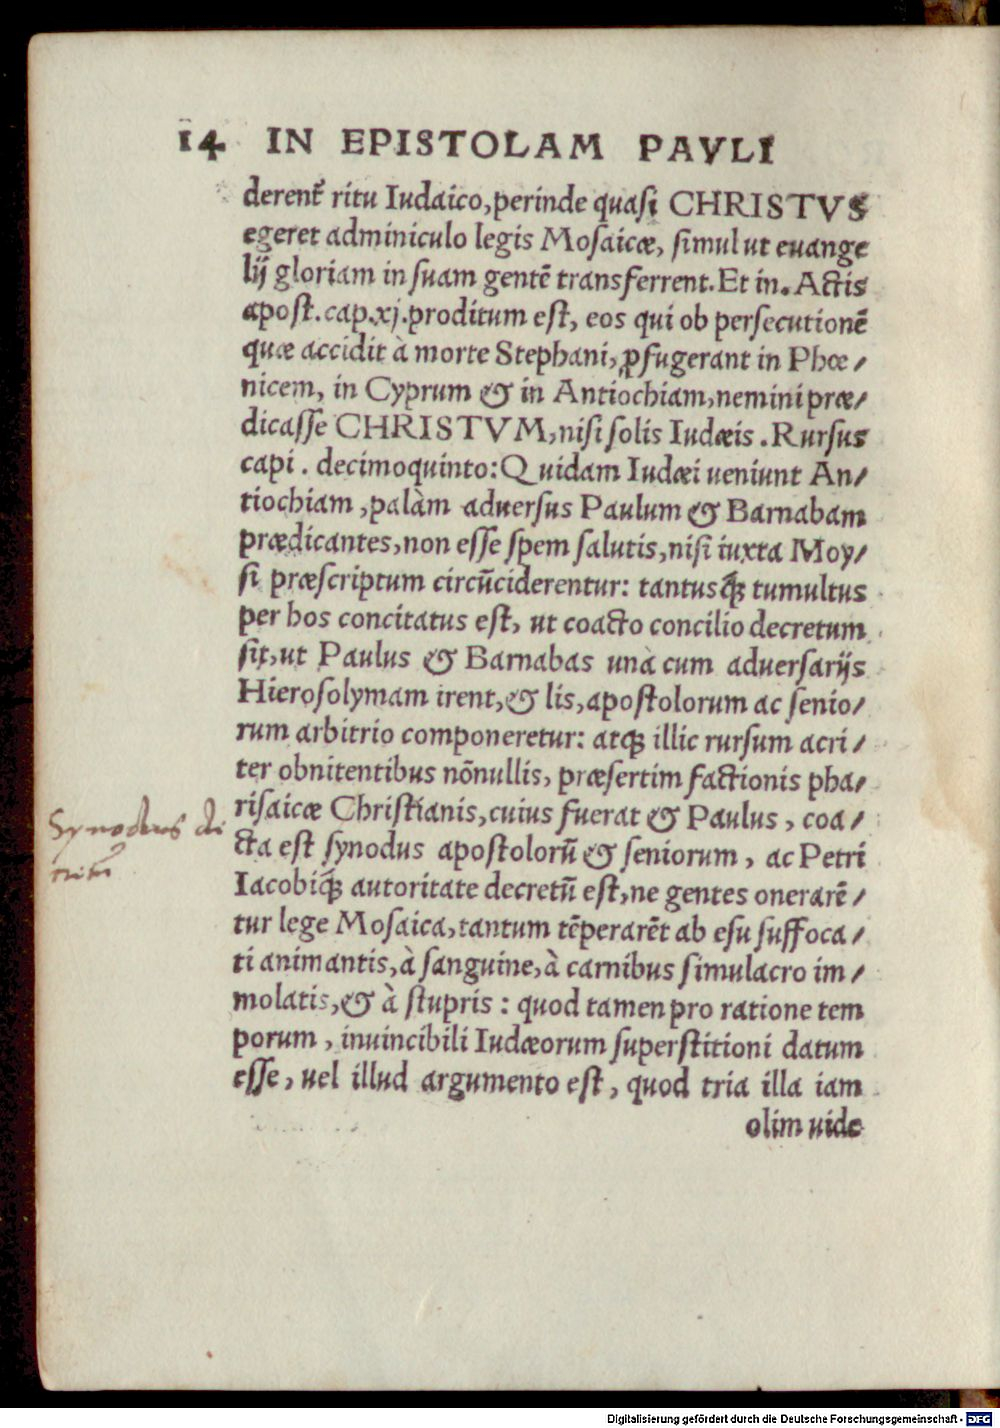 14 IN EPISTOLAM PAVLI
derent᷑ ritu Iudaico, perinde quasi CHRISTVS
egeret adminiculo legis Mosaicæ, simul ut euange
lij gloriam in suam gentē transferrent. Et in. Actis
apost. cap. xj. proditum est, eos qui ob persecutionē
quæ accidit à morte Stephani, ꝓfugerant in Phœ/
nicem, in Cyprum & in Antiochiam, nemini præ/
dicasse CHRISTVM, nisi solis Iudæis. Rursus
capi. decimoquinto: Quidam Iudæi ueniunt An/
tiochiam, palàm aduersus Paulum & Barnabam
prædicantes, non esse spem salutis, nisi iuxta Moy/
si præscriptum circūciderentur: tantusq́ꝫ tumultus
per hos concitatus est, ut coacto concilio decretum
sit, ut Paulus & Barnabas unà cum aduersarijs
Hierosolymam irent, & lis, apostolorum ac senio/
rum arbitrio componeretur: atqꝫ illic rursum acri/
ter obnitentibus nōnullis, præsertim factionis pha/
risaicæ Christianis, cuius fuerat & Paulus, coa/
Synodus
cta est synodus apostolorū & seniorum, ac Petri
Iacobiq́ꝫ autoritate decretū est, ne gentes onerarē/
tur lege Mosaica, tantum tēperarēt ab esu suffoca/
ti animantis, à sanguine, à carnibus simulacro im/
molatis, & à stupris: quod tamen pro ratione tem
porum, inuincibili Iudæorum superstitioni datum
esse, uel illud argumento est, quod tria illa iam
olim uide
Digitalisierung gefördert durch die Deutsche Forschungsgemeinschaft - DFG